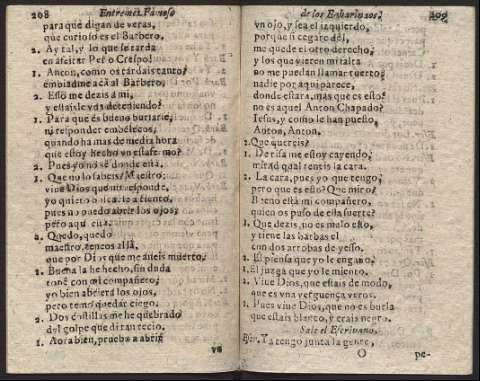 208 Entremes Famoso
para que digan de veras,
que curioso es el Barbero.
2. Ay tal, y lo que se tarda
en afeitar Pero Crespo!
1. Anton, como os tardais tanto?
embiadme acá al Barbero.
2. Esso me dezis a mi,
y estaisle vos deteniendo?
1. Para que es bueno burlarse,
ni responder embelecos,
quando ha mas de media hora
que estoy hecho vn estafermo?
2. Pues yo no sè donde està.
1. Que no lo sabeis? Maestro:
viue Dios que no responde,
yo quiero
pues no puedo abrir los ojos;
pero aqui està.
2. Quedo, quedo
maestro, teneos allà,
que por Dios que me aueis muerto.
1. Buena la he hecho, sin duda
topè con mi compañero;
yo bien abriera los ojos,
pero temo quedar ciego.
2. Dos costillas me he quebrado
del golpe que di tan recio.
1. Aora bien, prueba a abrir
vn
de los Enharinados. 209
vn ojo, y sea el izquierdo,
porque si cegare del,
me quede el otro derecho,
y los que vieren mi falta
no me puedan llamar tuerto;
nadie por aqui parece,
donde estarà, mas que es esto?
no es aquel Anton Chapado?
Iesus, y como le han puesto,
Anton, Anton.
2. Que quereis?
1. De risa me estoy cayendo,
mirad qual teneis la cara.
2. La cara, pues yo que tengo?
pero que es esto? Que miro?
Bueno està mi compañero,
quien os puso de essa suerte?
1. Que dezis, no es malo esso,
y tiene las barbas el
con dos arrobas de yesso.
2. El piensa que yo le engaño.
1. El juzga que yo le miento.
2. Viue Dios, que estais de modo,
que es vna verguença veros.
1. Pues viue Dios, que no es burla
que estais blanco, y erais negro.
Sale el Escriuano.
Escr. Ya tengo junta la gente,
O pe-